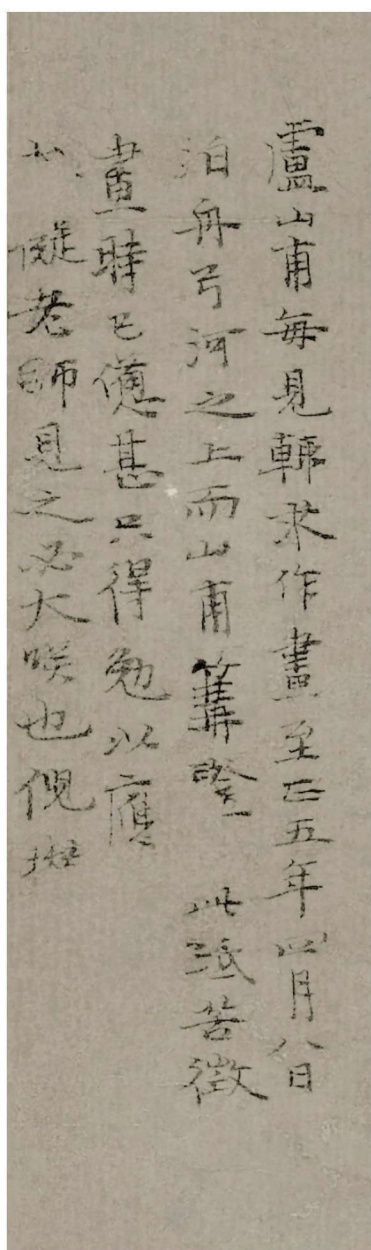 盧山甫每見輒求作畫至正五年四月八日
泊舟弓河之上而山甫篝燈此紙苦徵
畫時已憊甚只得勉以應
之癡老師見之必大咲也倪瓚